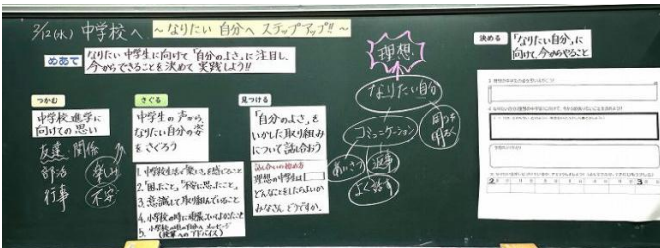 2/12(水) 中学校へ
～なりたい自分へ ステップアップ!!～
めあて
なりたい中学生に向けて「自分のよさ」に注目し、
今からできることを決めて 実践しよう!!
つかむ
中学校進学に
向けての思い
友達 関係
部活
行事
楽しみ
不安
さぐる
中学生の声から、
なりたい自分の姿
をさぐろう
1. 中学校生活で「楽しさ」を感じること
2. 「困ったこと」「不安に思ったこと」
3. 意識して取り組んでいること
4. 小学校の時に頑張っていてよかったこと
5.
(後輩へのアドバイス)
見つける
「自分のよさ」を
いかした取り組み
について話し合おう
話し合いの始め方
理想の中学生は
どんなことをしたらよいか
みなさん どうですか。
理想
なりたい自分
コミュニケーション
あいさつ
返事
よく話す
明るく
決める
「なりたい自分」に
向けて、今からやること